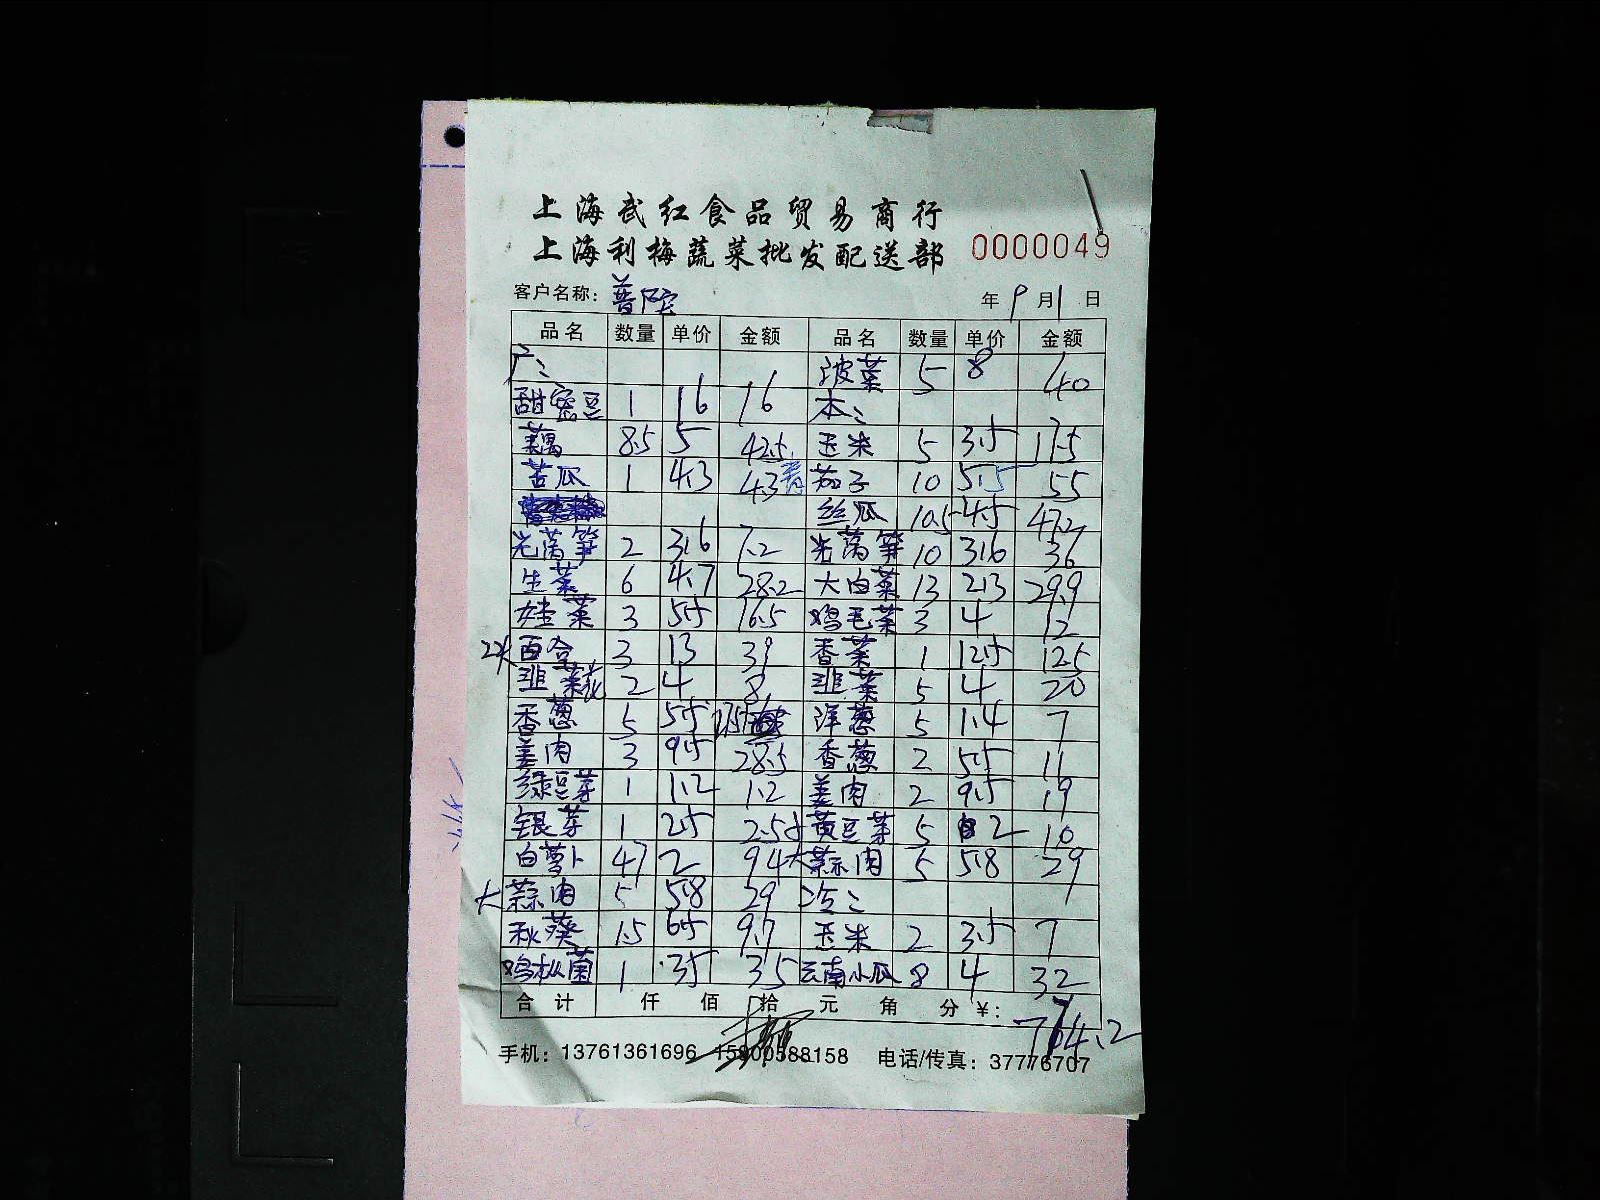 上海武红食品贸易商行
上海利梅蔬菜批发配送部 0000049
客户名称: 普陀 年 9 月 1 日
品名 数量 单价 金额 品名 数量 单价 金额
广: 波菜 5 8 40
甜密豆 1 16 16 本:
藕 8.5 5 42.5 玉米 5 3.5 17.5
苦瓜 1 4.3 4.3 茄子 10 5.5 55
丝瓜 10.5 4.5 47.2
光莴笋 2 3.6 7.2 光莴笋 10 3.6 36
生菜 6 4.7 28.2 大白菜 13 2.3 29.9
娃菜 3 5.5 16.5 鸡毛菜 3 4 12
百合 3 13 39 香菜 1 12.5 12.5
韭菜花 2 4 8 韭菜 5 4 20
香葱 5 5.5 27.5 洋葱 5 1.4 7
姜肉 3 9.5 28.5 香葱 2 5.5 11
绿豆芽 1 1.2 1.2 姜肉 2 9.5 19
银芽 1 2.5 2.5 黄豆芽 5 2 10
白萝卜 4.7 2 9.4 大蒜肉 5 5.8 29
大蒜肉 5 5.8 29 冷:
秋葵 1.5 6.5 9.7 玉米 2 3.5 7
鸡枞菌 1 35 35 云南小瓜 8 4 32
合计 仟 佰 拾 元 角 分 ¥: 764.2
手机: 13761361696 15800588158 电话/传真: 37776707